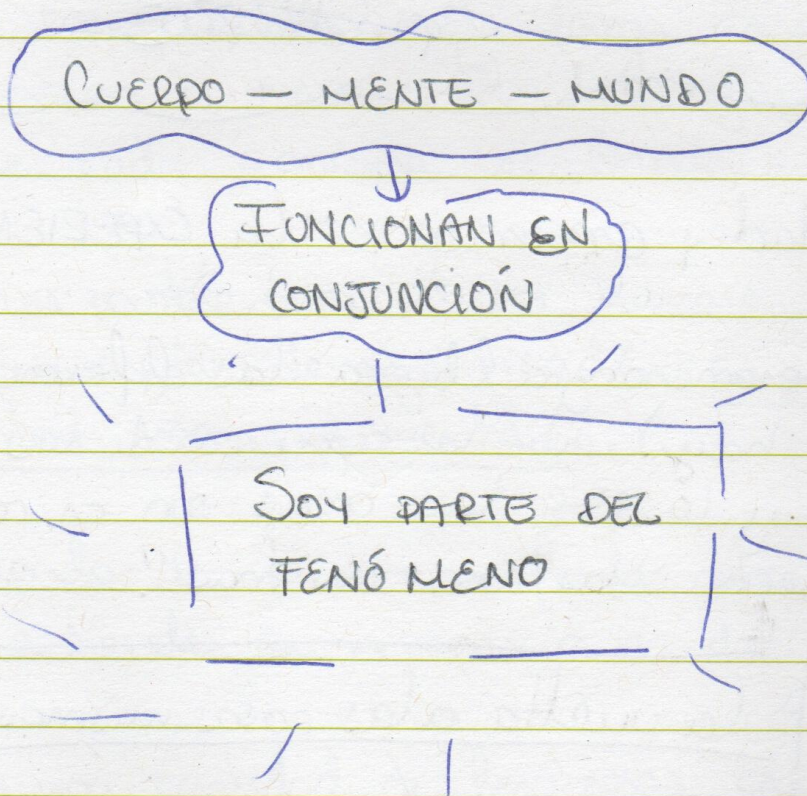 CUERPO — MENTE — MUNDO
FUNCIONAN EN
CONJUNCIÓN
SOY PARTE DEL
FENÓMENO